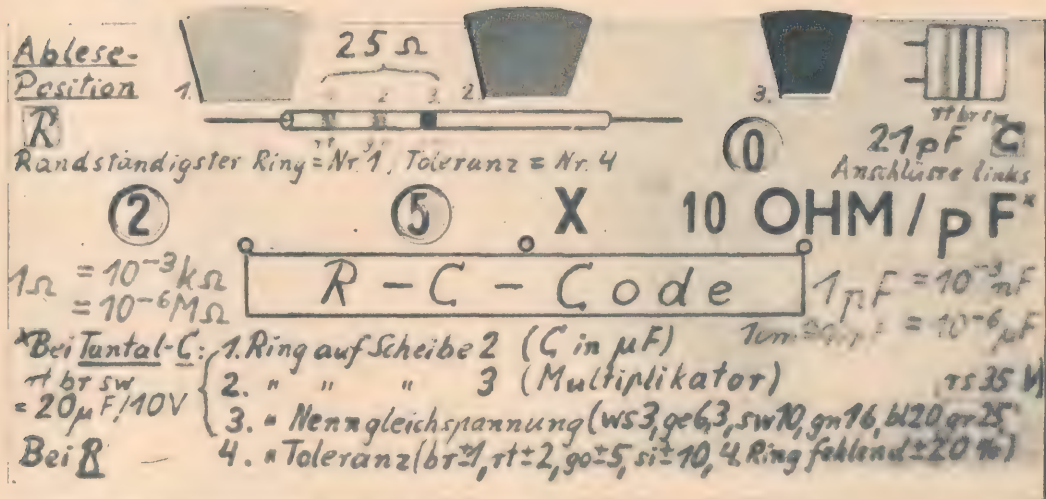 Ablese-
Position
R
1.
25 Ω
1 2 3.
2.
3.
rt br sw
21pF C
Anschlüsse links
Randständigster Ring = Nr. 1, Toleranz = Nr. 4
2 5 X 0
10 OHM/pF*
1Ω = 10⁻³kΩ
= 10⁻⁶MΩ
R - C - Code
1pF = 10⁻³nF
= 10⁻⁶μF
*Bei Tantal-C: 1. Ring auf Scheibe 2 (C in μF)
rt br sw
= 20μF/10V
2. " " " 3 (Multiplikator)
rs 35 V
3. " Nenngleichspannung (ws3, ge6,3, sw10, gn16, bl20, gr25,
Bei R
4. " Toleranz (br±1, rt±2, go±5, si±10, 4. Ring fehlend ±20 %)